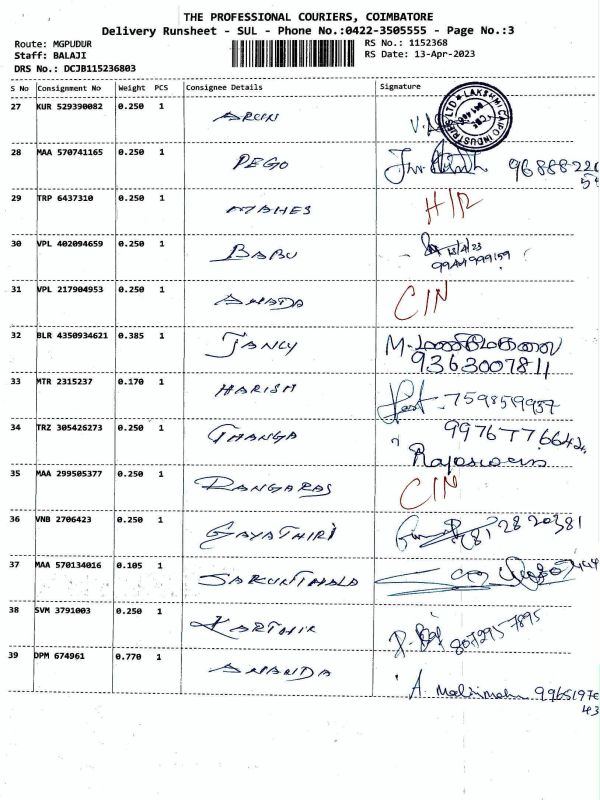 THE PROFESSIONAL COURIERS, COIMBATORE
Delivery Runsheet - SUL - Phone No.:0422-3505555 - Page No.:3
Route: MGPUDUR RS No.: 1152368
Staff: BALAJI RS Date: 13-Apr-2023
DRS No.: DCJB115236803
S No Consignment No Weight PCS Consignee Details Signature
27 KUR 529390082 0.250 1 ARUN
LAKSHMI CAIPO INDUSTRIES LTD
28 MAA 570741165 0.250 1 PEGO 96888220
29 TRP 6437310 0.250 1 MAHES H/R
30 VPL 402094659 0.250 1 BABU 13/4/23
9944999159
31 VPL 217904953 0.250 1 ANADA CIN
32 BLR 4350934621 0.385 1 JANCY M-
9363007811
33 MTR 2315237 0.170 1 HARISH 759859937
34 TRZ 305426273 0.250 1 THANGA 9976776642
35 MAA 299505377 0.250 1 RANGARAJ CIN
36 VNB 2706423 0.250 1 GAYATHIRI
37 MAA 570134016 0.105 1 SAKUNTHALA
38 SVM 3791003 0.250 1 KARTHIK 8072957895
39 DPM 674961 0.770 1 ANANDA
A. 9965197
43